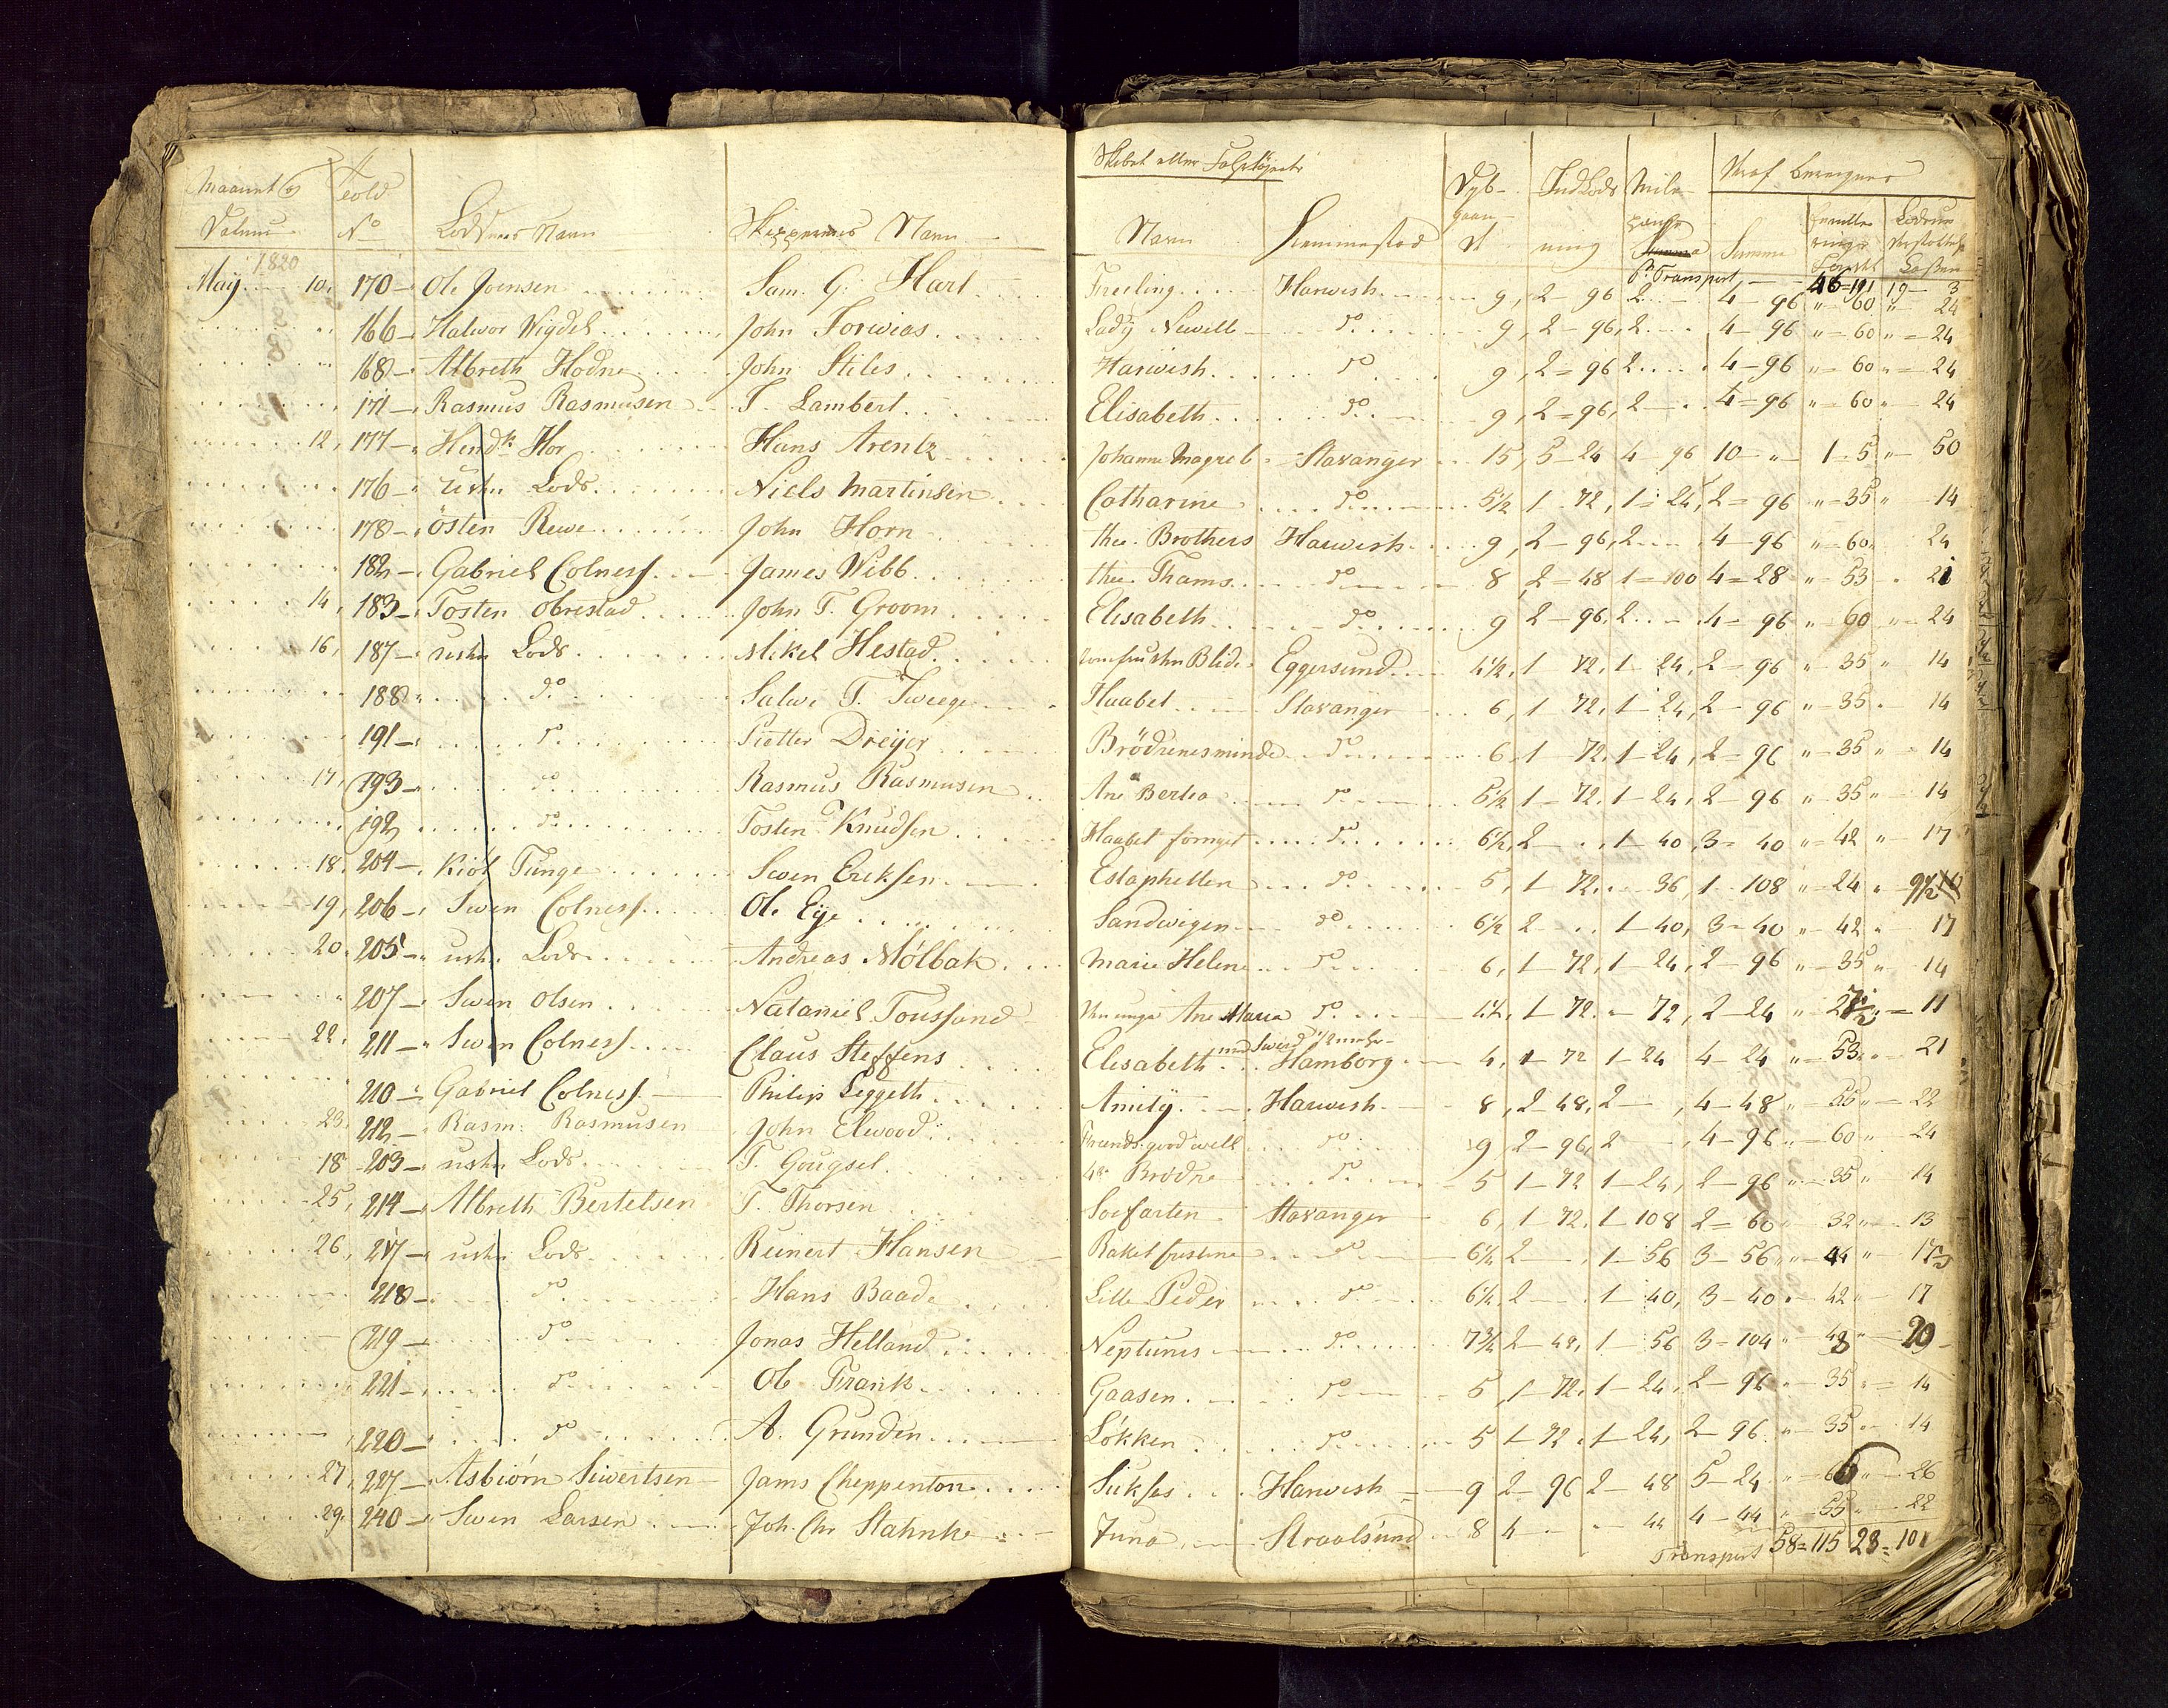 Maanet og
Datum
Seold
No
Lodsens Navn
Skippernes Navn
Skibet eller Fartøjets
Navn
Hiemmestad
Dyb-
gaaen-
d
IndLods
ning
Mile
penge
Hvoraf beregnes
Summa
Lodsens
1820
Pr Transport, — 46=191 19— 3
May 10, 170 — Ole Joensen Sam. G: Hart Freeling Harwish 9, 2 — 96 2 4 — 96 " 60 " 24
166 — Halwor Wigdel John Forwias Lady Newill do 9, 2 — 96, 2 4 — 96 " — 60 " = 24
168 — Albreth Hodne John Stiles Harwish do 9, 2 = 96 2 4 — 96 " — 60 " = 24
171 — Rasmus Rasmusen T. Lambert Elisabeth do 9, 2 = 96, 2 4 = 96 " — 60 " — 24
12, 177 — Hendk Hor Hans Arentz Johanne Magreb Stavanger 15, 5 — 24 4 — 96 10 — " 1 — 5 " — 50
176 — ustn Lods Niels Martinsen Catharine do 5½ 1 — 72, 1 = 24, 2 = 96 " — 35 " 14
178 — östen Rewe John Horn the Brothers Harwish 9, 2 — 96, 2 4 — 96 " — 60 " 24
182 — Gabriel Colness James Webb the Thams do 8, 2 = 48 1 = 100 4 = 28 " — 53 21
14, 183 — Tosten Obrestad John T. Groom Elesabeth do 9 2 — 96, 2 4 — 96 " 60 " — 24
16, 187 — ustn Lods Mikel Hestad Eggersund 4½, 1 72, 1 — 24, 2 = 96 " — 35 " 14
188 do Salwe T. Tweege Haabet Stavanger 6, 1 — 72, 1 — 24, 2 — 96 " — 35 14
191 — do Pietter Dreyer Brödrenesminde do 6, 1 — 72, 1 — 24, 2 — 96 " — 35 " 14
17, 193 — do Rasmus Rasmusen Ane Berta do 5½ 1 — 72, 1 — 24, 2 — 96 " — 35 " 14
192 do Tosten Knudsen Haabet fornyet do 6½, 2 — 1 — 40, 3 = 40 " = 42 " 17
18, 204 — Kiöl Tunge Swen Eriksen Estaphetten do 5, 1 — 72 36, 1 — 108 " — 24 " 9½
19, 206 — Swen Colness Ole Eye Sandwigen do 6½ 2 1 — 40, 3 — 40 " — 42 17
20, 205 — ustn Lods Andreas Mölbak Marie Helene do 6, 1 — 72, 1 — 24, 2 — 96 " — 35 " 14
207 — Swen Olsen Nataniel Toussand Ane Maria do 4½, 1 — 72 — 72, 2 — 24 = 11
22, 211 — Swen Colness Claus Steffens Elesabeth Hamborg 4, 1 — 72 1 — 24 4 — 24 " — 53 21
210 — Gabriel Colness Philip Leggeth Amity Harwesh 8, 2 — 48, 2 — 4 — 48 " 55 " 22
23, 212 — Rasm: Rasmusen John Elwood Friends good will do 9 2 — 96, 2 4 — 96 " — 60 " — 24
18 203 — ustn Lods T. Gougsel 4re Brödre do 5 1 — 72 1 — 24, 2 — 96 " — 35 " 14
25, 214 — Albreth Bertelsen T. Thorsen Soefarten Stavanger 6, 1 — 72, 1 — 108 2 = 60 32 " — 13
26, 217 — ustn Lods Reinert Hansen Rakel do 6½ 2 — 1 — 56 3 — 56 " 44 "
218 — do Hans Baade Lille Peder do 6½, 2 — 1 — 40, 3 — 40 — 42 " 17
219 — do Jonas Helland Neptunus do 7¾ 2 — 48, 1 — 56 3 = 104 " — 48 " 20
221 — do Ole Frank Gaasen do 5, 1 — 72, 1 — 24, 2 — 96 — 35 " = 14
220 — do A. Grunden Lökken do 5 1 — 72, 1 — 24, 2 — 96 " — 35 14
27, 227 — Asbiörn Siwertsen Jams Cheppenton Sukses Harwesh 9 2 — 96 2 — 48 5 — 24 26
29, 240 — Swen Larsen Joh. Chr Stahnke Juno Straalsund 8 4 44 4 — 44 55 22
Transport 58=115 23=101